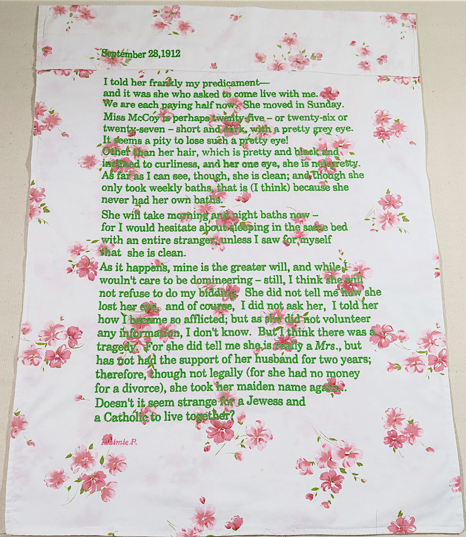 September 28,1912
I told her frankly my predicament—
and it was she who asked to come live with me.
We are each paying half now. She moved in Sunday.
Miss McCoy is perhaps twenty-five – or twenty-six or
twenty-seven – short and dark, with a pretty grey eye.
It seems a pity to lose such a pretty eye!
Other than her hair, which is pretty and black and
inclined to curliness, and her one eye, she is not pretty.
As far as I can see, though, she is clean; and though she
only took weekly baths, that is (I think) because she
never had her own baths.
She will take morning and night baths now –
for I would hesitate about sleeping in the same bed
with an entire stranger, unless I saw for myself
that she is clean.
As it happens, mine is the greater will, and while I
wouln't care to be domineering – still, I think she will
not refuse to do my bidding. She did not tell me how she
lost her eye, and of course, I did not ask her, I told her
how I became so afflicted; but as she did not volunteer
any information, I don't know. But I think there was a
tragedy. For she did tell me she is really a Mrs., but
has not had the support of her husband for two years;
therefore, though not legally (for she had no money
for a divorce), she took her maiden name again.
Doesn't it seem strange for a Jewess and
a Catholic to live together?
Maimie P.